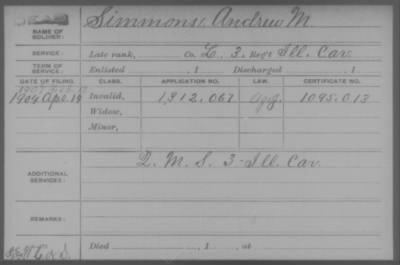 NAME OF SOLDIER: Simmons, Andrew M.
SERVICE: Late rank, Co. L, 3, Reg't Ill. Cav.
TERM OF SERVICE: Enlisted , 1 Discharged , 1
DATE OF FILING. CLASS. APPLICATION NO. LAW. CERTIFICATE NO.
1907
1904 Apr. 19 Invalid, 1,312,067 1,095,013
Widow,
Minor,
ADDITIONAL SERVICES: Q. M. S. 3 Ill. Cav.
REMARKS:
Died , 1 , at